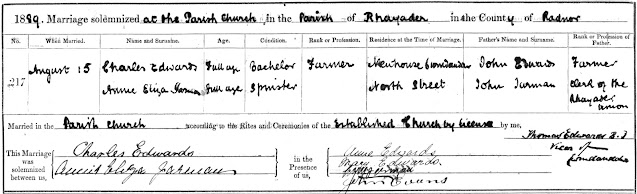 1889. Marriage solemnized at the Parish Church in the Parish of Rhayader in the County of Radnor
No. When Married. Name and Surname. Age. Condition. Rank or Profession. Residence at the Time of Marriage. Father's Name and Surname. Rank or Profession of Father.
217 August 15 Charles Edwards Full age Bachelor Farmer Newhouse John Edwards Farmer
Annie Eliza Full age Spinster North Street John Jarman Clerk of the Rhayader Union
Married in the Parish Church according to the Rites and Ceremonies of the Established Church by License by me,
Thomas Edwards
Vicar of
This Marriage was solemnized between us,
Charles Edwards
Jarman
in the Presence of us,
Anne Edwards
Mary Edwards
John Evans